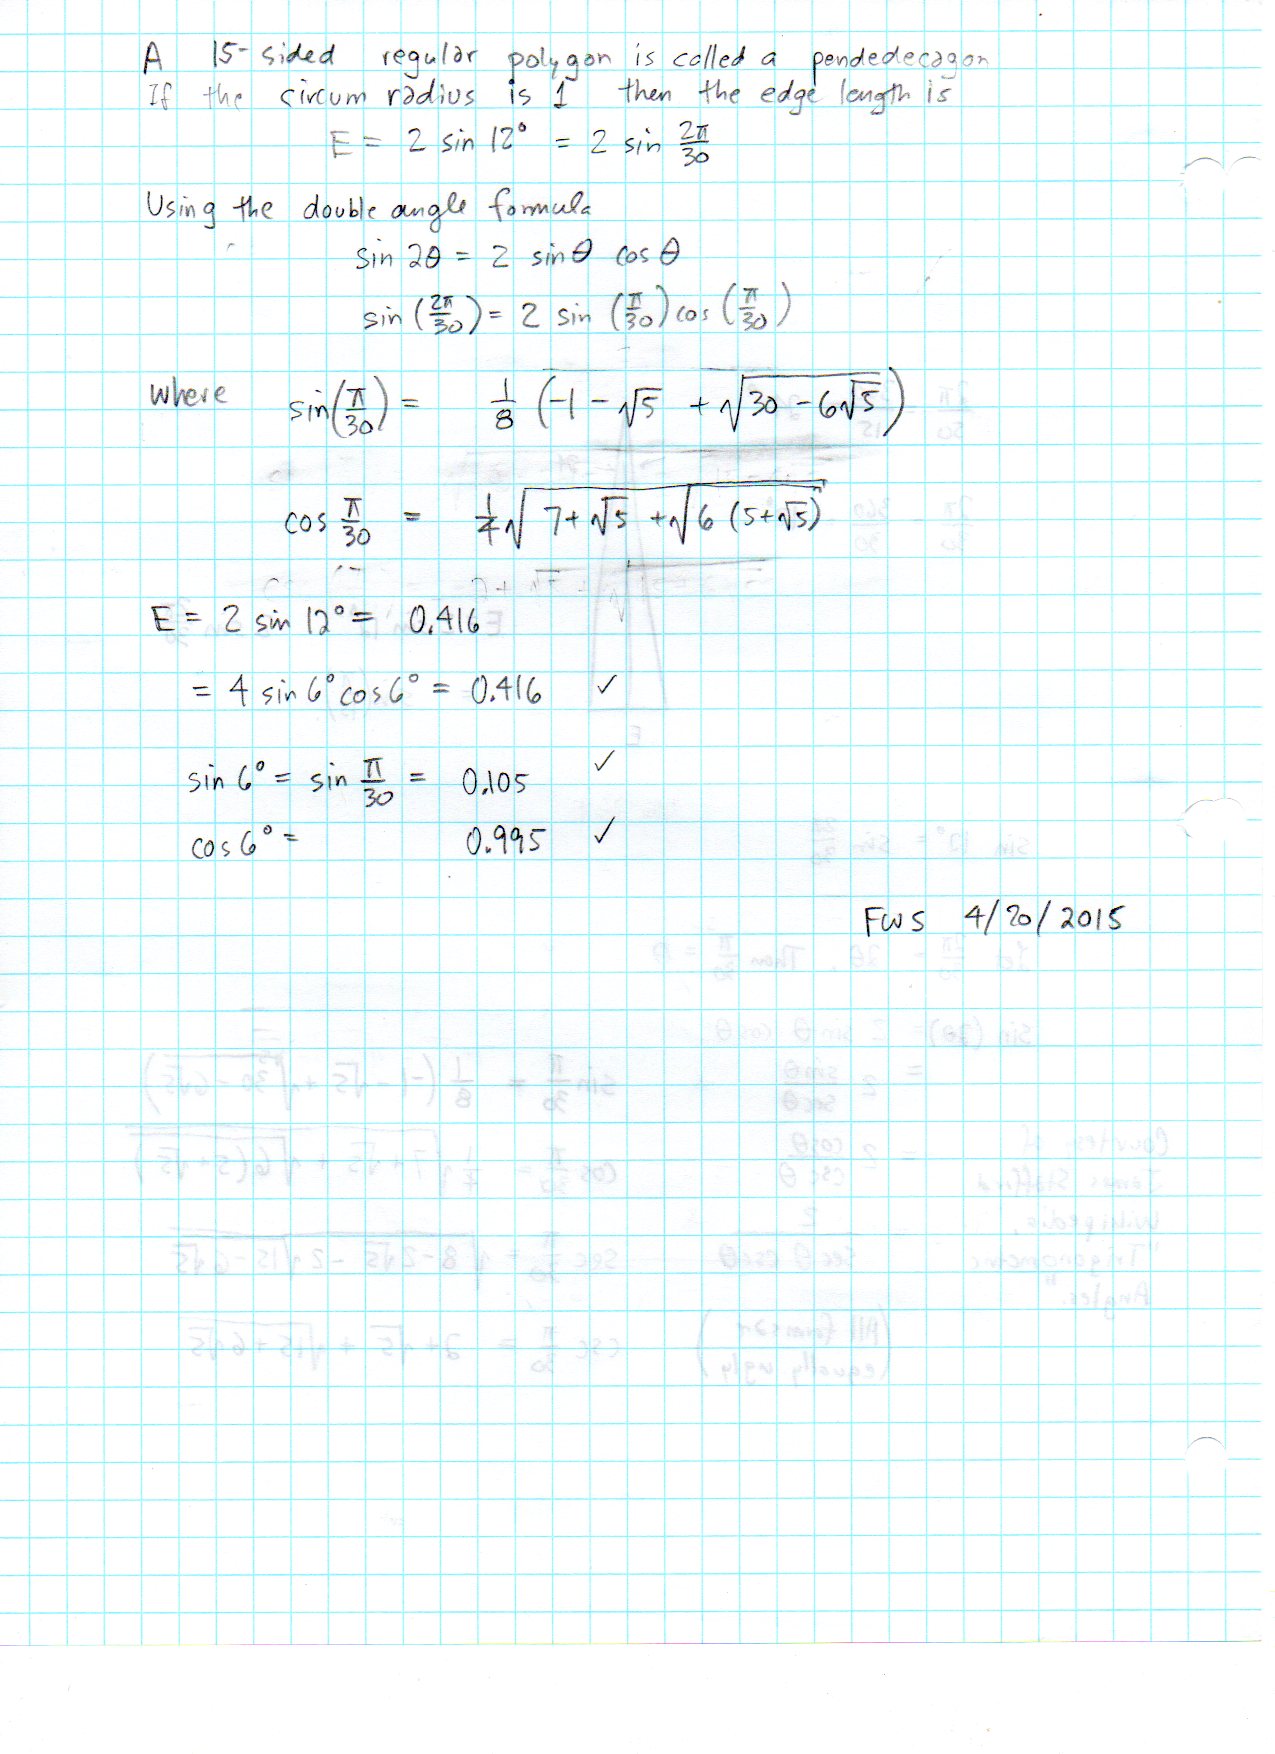 A 15-sided regular polygon is called a pendedecagon
If the circum radius is 1 then the edge length is
E = 2 sin 12° = 2 sin 2π/30
Using the double angle formula
sin 2θ = 2 sin θ cos θ
sin (2π/30) = 2 sin (π/30) cos (π/30)
where sin(π/30) = 1/8 (-1 - √5 + √(30 - 6√5))
cos π/30 = 1/4 √(7 + √5 + √(6 (5+√5)))
E = 2 sin 12° = 0.416
= 4 sin 6° cos 6° = 0.416 ✓
sin 6° = sin π/30 = 0.105 ✓
cos 6° = 0.995 ✓
FWS 4/20/2015